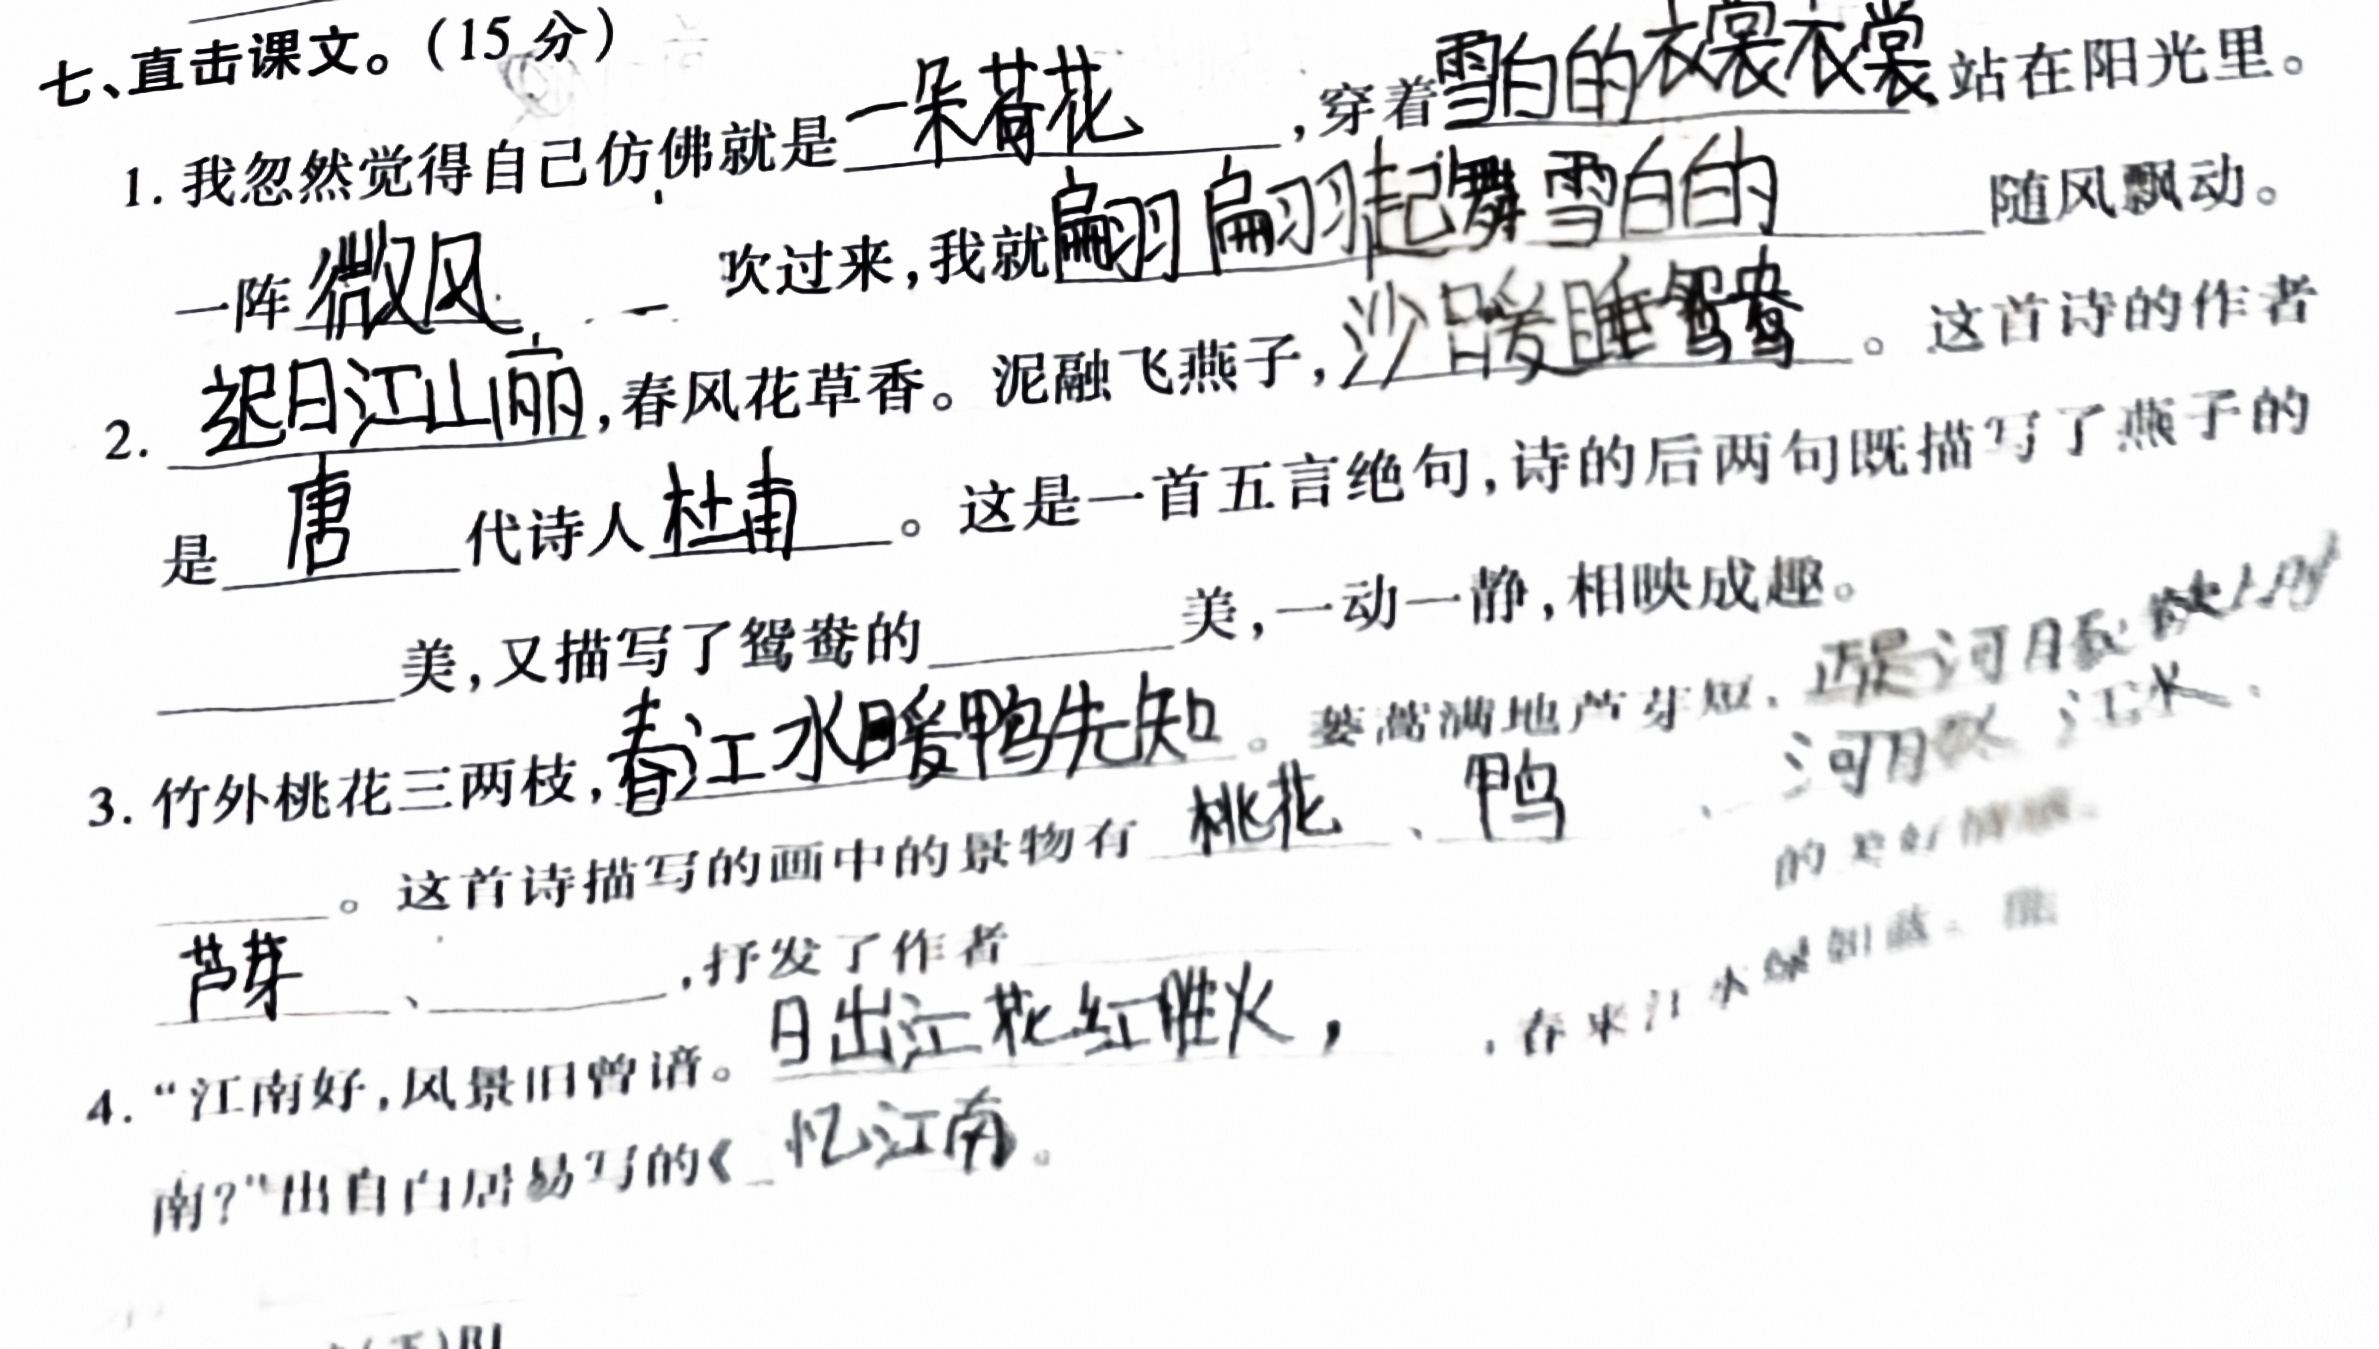 七、直击课文。(15分)
1. 我忽然觉得自己仿佛就是一朵荷花,穿着雪白的衣裳衣裳站在阳光里。
一阵微风吹过来,我就翩翩起舞雪白的随风飘动。
2. 迟日江山丽,春风花草香。泥融飞燕子,沙暖睡鸳鸯。这首诗的作者
是唐代诗人杜甫。这是一首五言绝句,诗的后两句既描写了燕子的
美,又描写了鸳鸯的美,一动一静,相映成趣。
3. 竹外桃花三两枝,春江水暖鸭先知。蒌蒿满地芦芽短,正是河豚欲上时
。这首诗描写的画中的景物有桃花、鸭、河豚、江水、
芦芽、,抒发了作者的美好
4. “江南好,风景旧曾谙。日出江花红胜火,,春来江水绿如蓝。能
南?”出自白居易写的《忆江南。